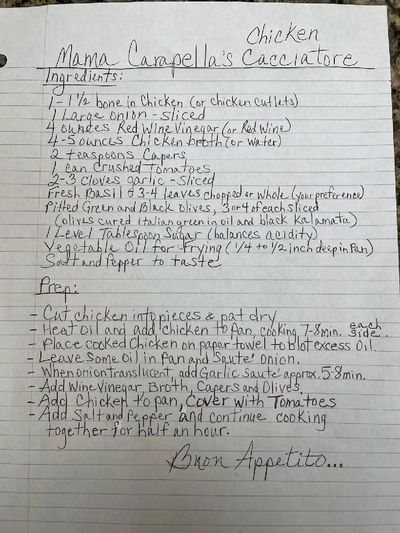 Chicken
Mama Carapella's Cacciatore
Ingredients:
1 - 1½ bone in Chicken (or chicken cutlets)
1 Large onion - sliced
4 ounces Red Wine Vinegar (or Red Wine)
4-5 ounces Chicken broth (or water)
2 teaspoons Capers
1 can Crushed Tomatoes
2-3 Cloves garlic - Sliced
Fresh Basil 3-4 leaves chopped or whole (your preference)
Pitted Green and Black Olives, 3 or 4 of each sliced
(olives cured Italian green in oil and black Kalamata)
1 Level Tablespoon Sugar (balances acidity)
Vegetable Oil for Frying (1/4 to 1/2 inch deep in Pan)
Salt and Pepper to taste
Prep:
- Cut chicken into pieces & pat dry
- Heat Oil and add chicken to pan, cooking 7-8 min. each side.
- Place cooked Chicken on paper towel to blot excess Oil.
- Leave Some Oil in Pan and Sauté Onion.
- When Onion translucent, add Garlic Sauté approx. 5-8 min.
- Add Wine Vinegar, Broth, Capers and Olives.
- Add Chicken to pan, Cover with Tomatoes
- Add Salt and Pepper and continue cooking
together for half an hour.
Buon Appetito...